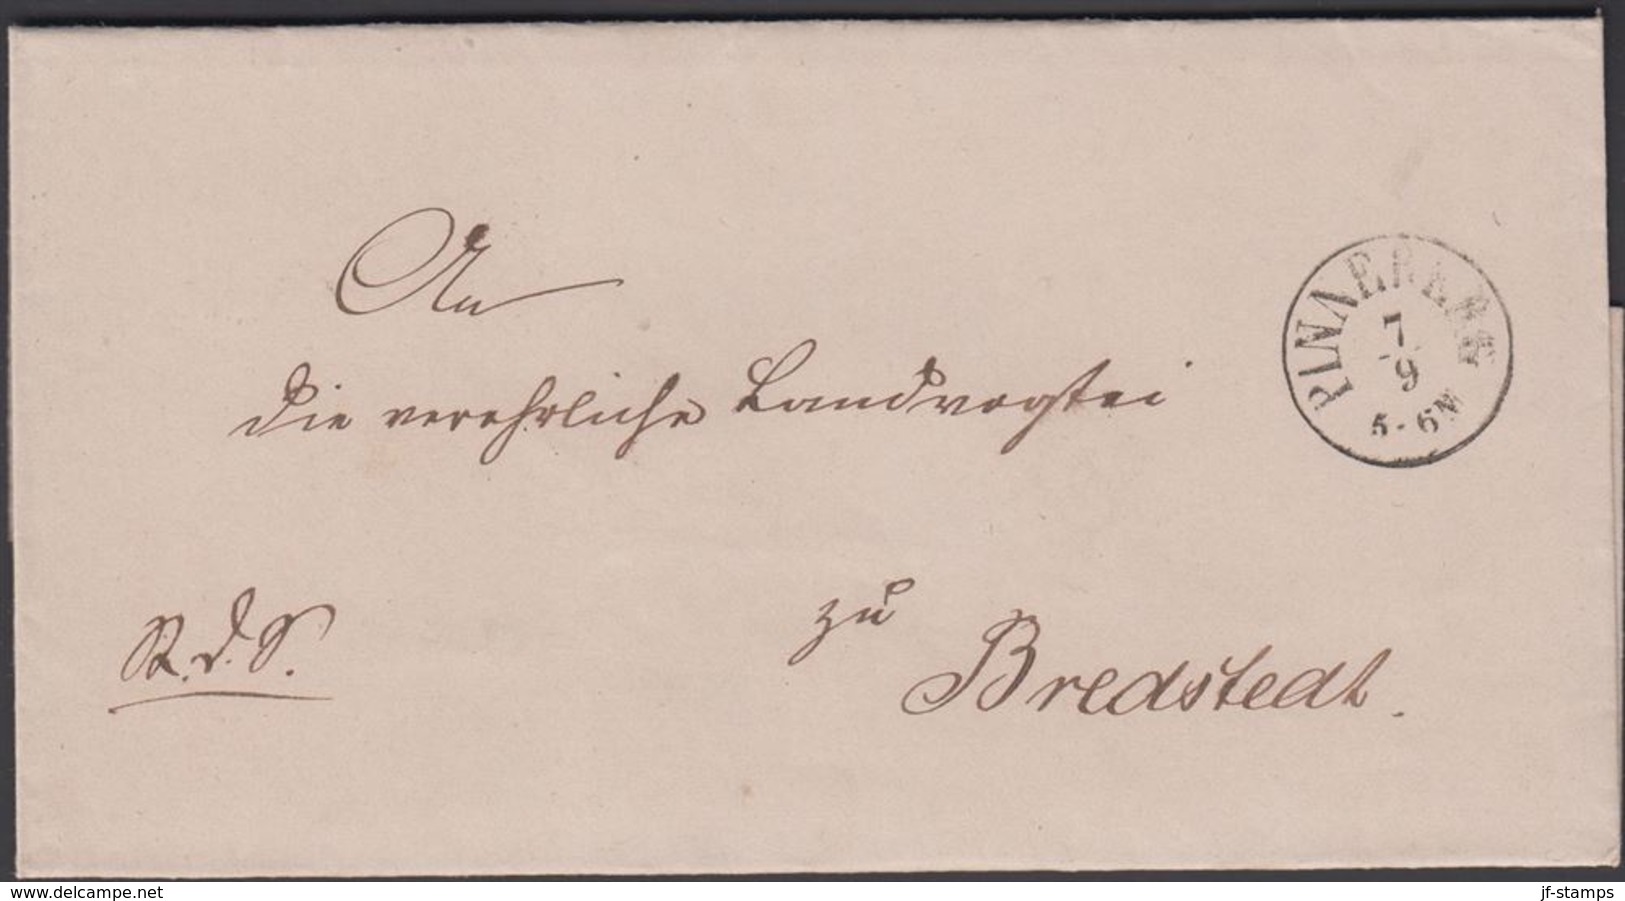 An
PINNEBERG
7
9
5-6N
die verehrliche Landvogtei
zu
R.d.S.
Bredstedt.
www.delcampe.net
jf-stamps